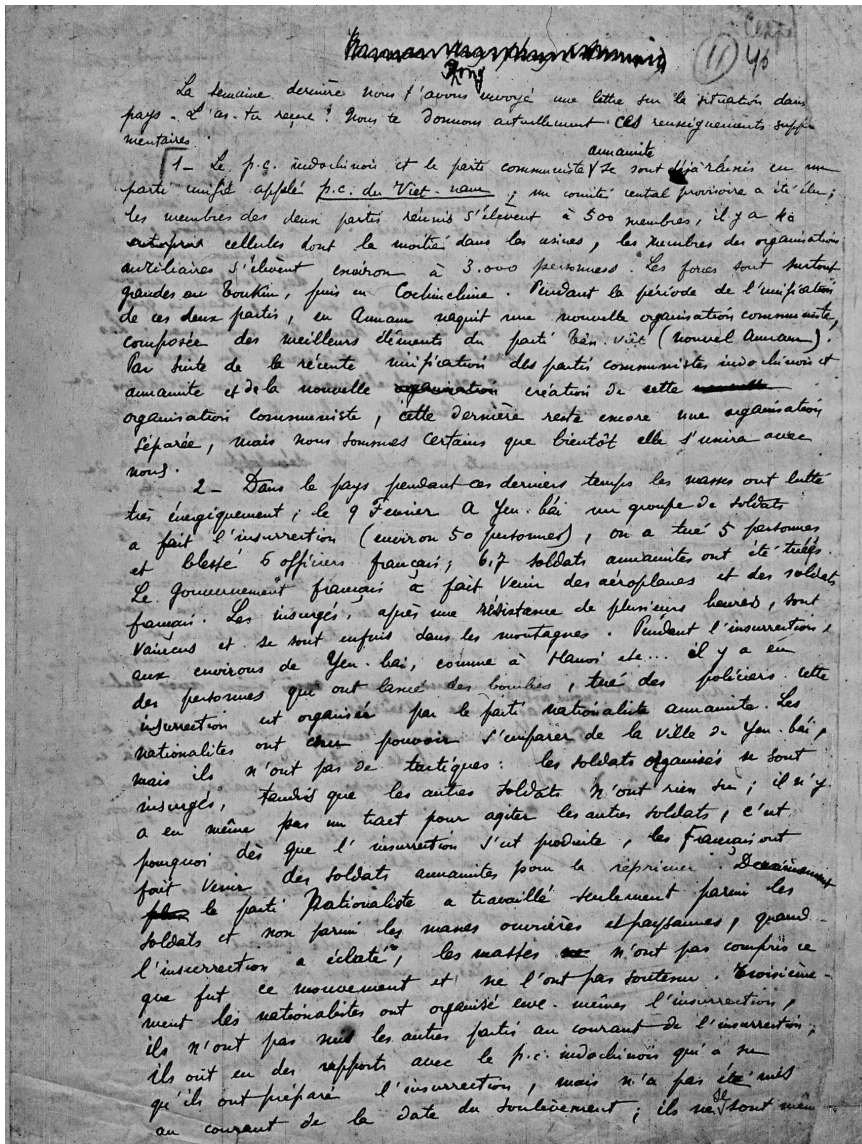 (11) 46
Rong
La semaine dernière nous t'avons envoyé une lettre sur la situation dans
pays - L'as-tu reçue ? Nous te donnons actuellement ces renseignements supplé
mentaires
1- Le p.c. indochinois et le parti communiste annamite se sont déjà réunis en un
parti unifié appelé p.c. du Viet-nam ; un comité cental provisoire a été élu ;
les membres des deux partis réunis s'élèvent à 500 membres, il y a 40
cellules dont la moitié dans les usines, les membres des organisations
auxiliaires s'élèvent environ à 3.000 personnes. Les forces sont surtout
grandes au Tonkin, puis en Cochinchine. Pendant la période de l'unification
de ces deux partis, en Annam naquit une nouvelle organisation communiste,
composée des meilleurs éléments du parti Tân-Viêt (nouvel Annam).
Par suite de la récente unification des partis communistes indochinois et
annamite et de la nouvelle organisation création de cette
organisation communiste, cette dernière reste encore une organisation
séparée, mais nous sommes certains que bientôt elle s'unira avec
nous.
2- Dans le pays pendant ces derniers temps les masses ont lutté
très énergiquement ; le 9 Février a Yen-bái un groupe de soldats
a fait l'insurrection (environ 50 personnes), on a tué 5 personnes
et blessé 6 officiers français ; 6,7 soldats annamites ont été tués.
Le Gouvernement français a fait venir des aéroplanes et des soldats
français. Les insurgés, après une résistance de plusieurs heures, sont
vaincus et se sont enfuis dans les montagnes. Pendant l'insurrection,
aux environs de Yen-bai, comme à Hanoi etc... il y a eu
des personnes qui ont lancé des bombes, tué des policiers. cette
insurrection est organisée par le parti nationaliste annamite. Les
nationalites ont cru pouvoir s'emparer de la ville de Yen-bái,
mais ils n'ont pas de tactiques : les soldats organisés se sont
insurgés, tandis que les autres soldats n'ont rien su ; il n'y
a eu même pas un tract pour agiter les autres soldats, c'est
pourquoi dès que l'insurrection s'est produite, les Français ont
fait venir des soldats annamites pour la réprimer. Deuxièmement
le parti Nationaliste a travaillé seulement parmi les
soldats et non parmi les masses ouvrières et paysannes, quand
l'insurrection a éclaté, les masses n'ont pas compris ce
que fut ce mouvement et ne l'ont pas soutenu. Troisième-
ment les nationalistes ont organisé eux-mêmes l'insurrection,
ils n'ont pas mis les autres partis au courant de l'insurrection ;
ils ont eu des rapports avec le p.c. indochinois qui a su
qu'ils ont préparé l'insurrection, mais n'a pas été mis
au courant de la date du soulèvement ; ils ne se sont même